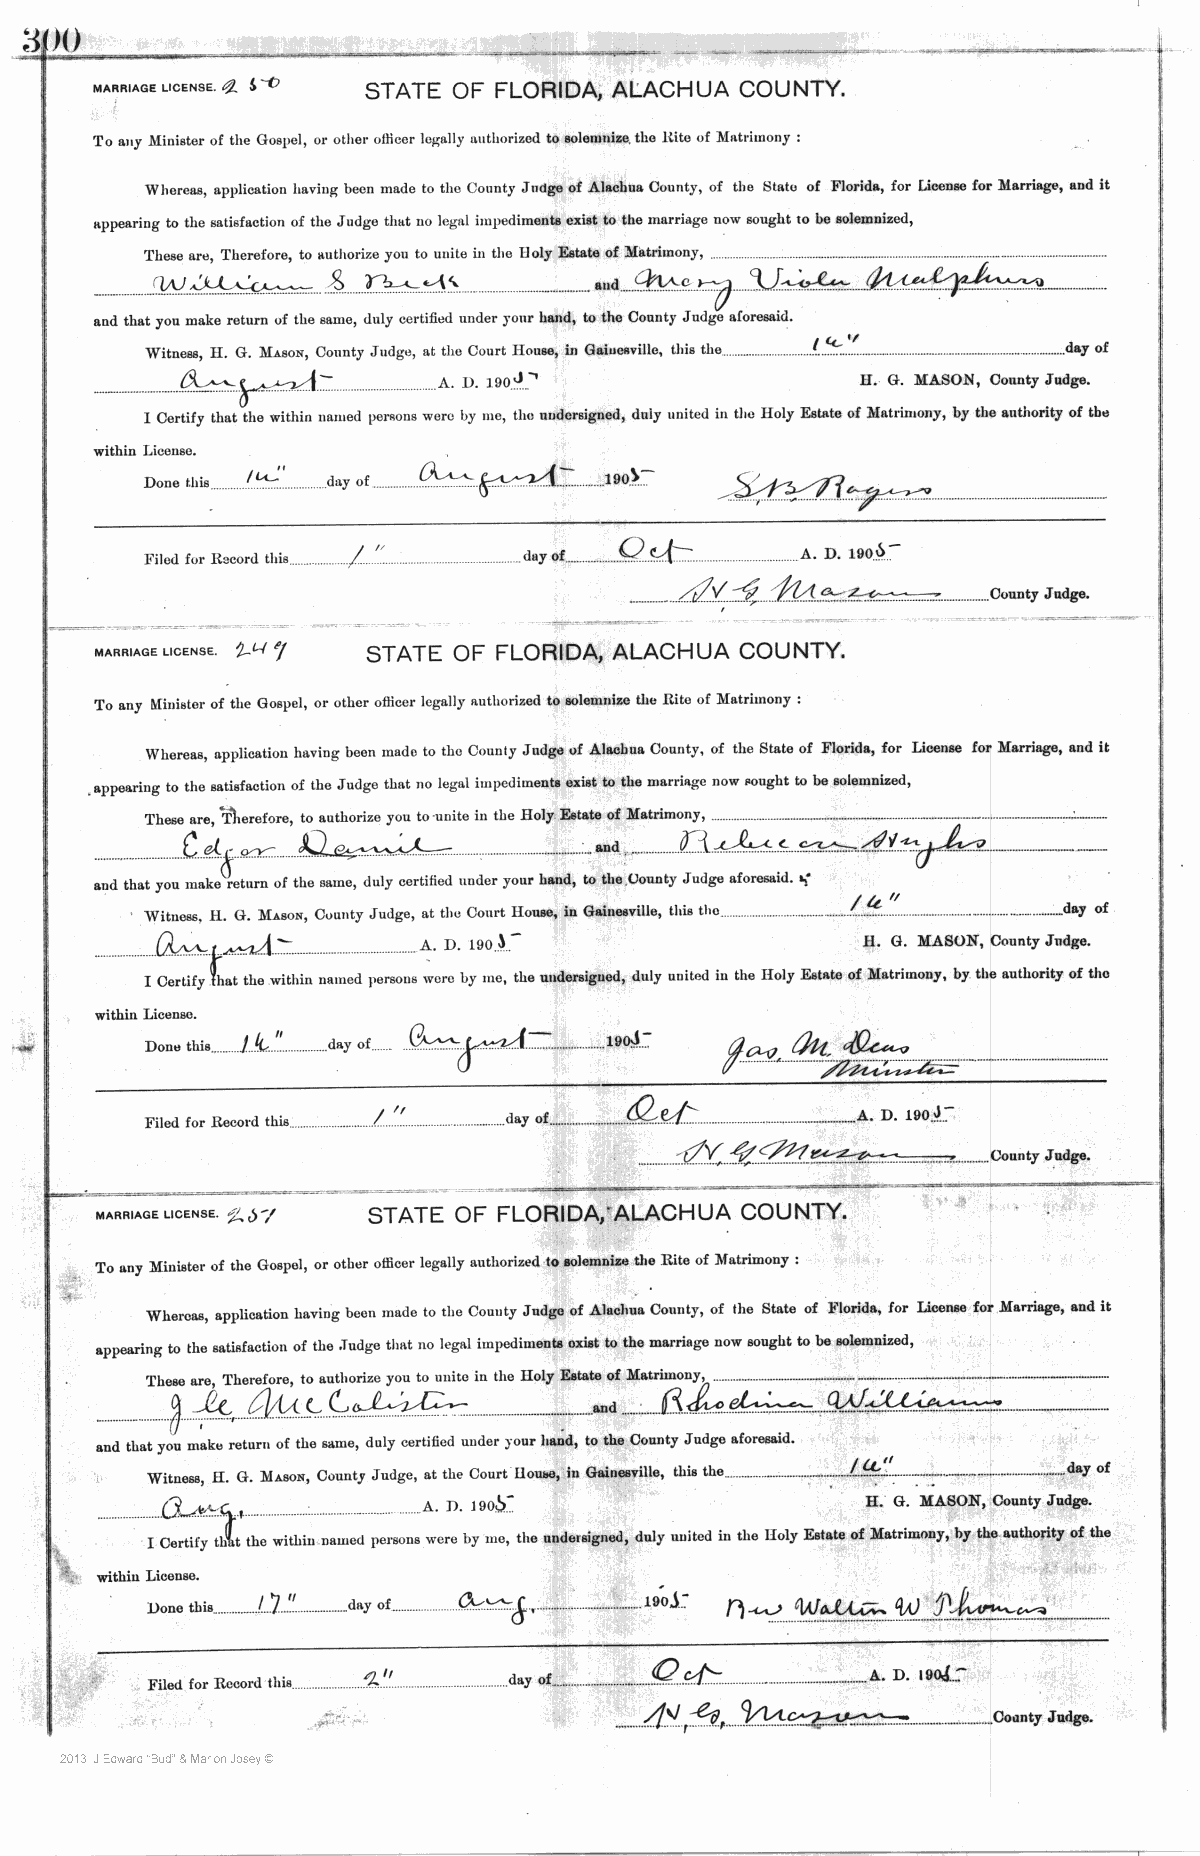 300
MARRIAGE LICENSE. 250 STATE OF FLORIDA, ALACHUA COUNTY.
To any Minister of the Gospel, or other officer legally authorized to solemnize the Rite of Matrimony :
Whereas, application having been made to the County Judge of Alachua County, of the State of Florida, for License for Marriage, and it
appearing to the satisfaction of the Judge that no legal impediments exist to the marriage now sought to be solemnized,
These are, Therefore, to authorize you to unite in the Holy Estate of Matrimony,
William S Beck and Mary Viola Malphurs
and that you make return of the same, duly certified under your hand, to the County Judge aforesaid.
Witness, H. G. MASON, County Judge, at the Court House, in Gainesville, this the day of
August A. D. 1905 H. G. MASON, County Judge.
I Certify that the within named persons were by me, the undersigned, duly united in the Holy Estate of Matrimony, by the authority of the
within License.
Done this day of August 1905 S. B. Rogers
Filed for Record this 1" day of Oct A. D. 1905
H. G. Mason County Judge.
MARRIAGE LICENSE. 249 STATE OF FLORIDA, ALACHUA COUNTY.
To any Minister of the Gospel, or other officer legally authorized to solemnize the Rite of Matrimony :
Whereas, application having been made to the County Judge of Alachua County, of the State of Florida, for License for Marriage, and it
appearing to the satisfaction of the Judge that no legal impediments exist to the marriage now sought to be solemnized,
These are, Therefore, to authorize you to unite in the Holy Estate of Matrimony,
Edgar Daniel and Rebecca Hughs
and that you make return of the same, duly certified under your hand, to the County Judge aforesaid.
Witness, H. G. MASON, County Judge, at the Court House, in Gainesville, this the day of
August A. D. 1905 H. G. MASON, County Judge.
I Certify that the within named persons were by me, the undersigned, duly united in the Holy Estate of Matrimony, by the authority of the
within License.
Done this day of August 1905 Jas. M. Deas
Minster
Filed for Record this 1" day of Oct A. D. 1905
H. G. Mason County Judge.
MARRIAGE LICENSE. 251 STATE OF FLORIDA, ALACHUA COUNTY.
To any Minister of the Gospel, or other officer legally authorized to solemnize the Rite of Matrimony :
Whereas, application having been made to the County Judge of Alachua County, of the State of Florida, for License for Marriage, and it
appearing to the satisfaction of the Judge that no legal impediments exist to the marriage now sought to be solemnized,
These are, Therefore, to authorize you to unite in the Holy Estate of Matrimony,
J. C. McCalister and Rhodina Williams
and that you make return of the same, duly certified under your hand, to the County Judge aforesaid.
Witness, H. G. MASON, County Judge, at the Court House, in Gainesville, this the day of
Aug. A. D. 1905 H. G. MASON, County Judge.
I Certify that the within named persons were by me, the undersigned, duly united in the Holy Estate of Matrimony, by the authority of the
within License.
Done this 17" day of Aug. 1905 Rev Walter W Thomas
Filed for Record this 2" day of Oct A. D. 1905
H. G. Mason County Judge.
2013 J Edward "Bud" & Marion Josey ©